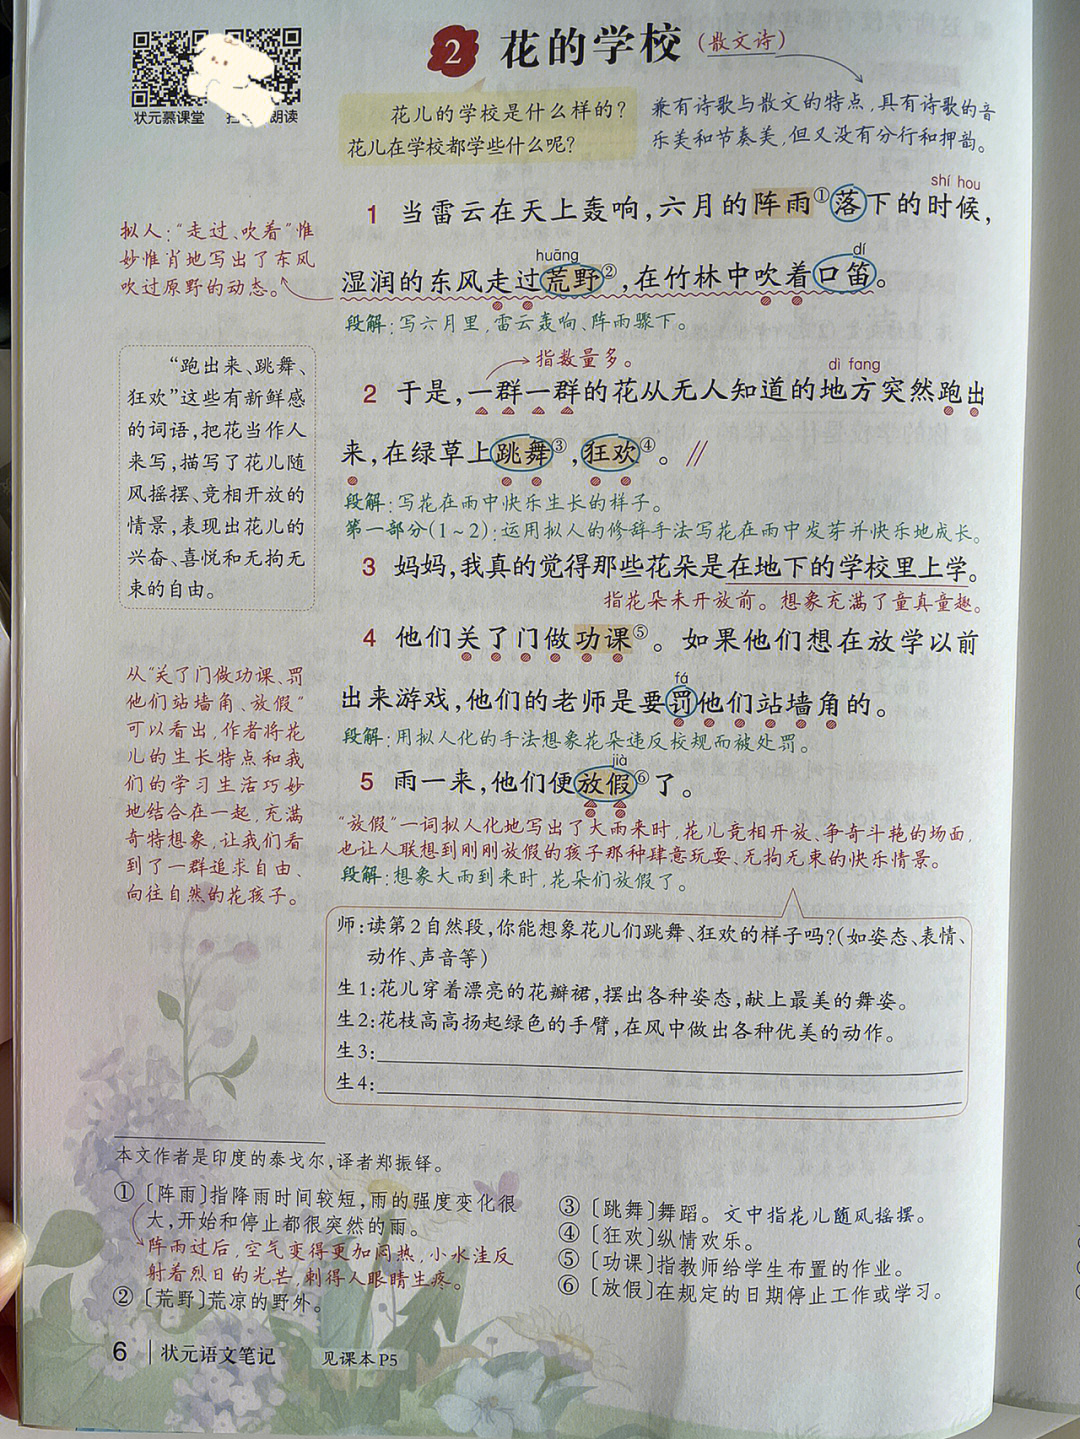 2 花的学校(散文诗)
状元慕课堂
朗读
花儿的学校是什么样的?
花儿在学校都学些什么呢?
兼有诗歌与散文的特点,具有诗歌的音
乐美和节奏美,但又没有分行和押韵。
shí hou
1 当雷云在天上轰响,六月的阵雨①落下的时候,
huāng dí
湿润的东风走过荒野②,在竹林中吹着口笛。
段解:写六月里,雷云轰响、阵雨骤下。
拟人:“走过、吹着”惟
妙惟肖地写出了东风
吹过原野的动态。
指数量多。
dì fang
2 于是,一群一群的花从无人知道的地方突然跑出
来,在绿草上跳舞③,狂欢④。//
段解:写花在雨中快乐生长的样子。
第一部分(1~2):运用拟人的修辞手法写花在雨中发芽并快乐地成长。
“跑出来、跳舞、
狂欢”这些有新鲜感
的词语,把花当作人
来写,描写了花儿随
风摇摆、竞相开放的
情景,表现出花儿的
兴奋、喜悦和无拘无
束的自由。
3 妈妈,我真的觉得那些花朵是在地下的学校里上学。
指花朵未开放前。想象充满了童真童趣。
4 他们关了门做功课⑤。如果他们想在放学以前
fá
出来游戏,他们的老师是要罚他们站墙角的。
段解:用拟人化的手法想象花朵违反校规而被处罚。
jià
5 雨一来,他们便放假⑥了。
“放假”一词拟人化地写出了大雨来时,花儿竞相开放、争奇斗艳的场面,
也让人联想到刚刚放假的孩子那种肆意玩耍、无拘无束的快乐情景。
段解:想象大雨到来时,花朵们放假了。
从“关了门做功课、罚
他们站墙角、放假”
可以看出,作者将花
儿的生长特点和我
们的学习生活巧妙
地结合在一起,充满
奇特想象,让我们看
到了一群追求自由、
向往自然的花孩子。
师:读第2自然段,你能想象花儿们跳舞、狂欢的样子吗?(如姿态、表情、
动作、声音等)
生1:花儿穿着漂亮的花瓣裙,摆出各种姿态,献上最美的舞姿。
生2:花枝高高扬起绿色的手臂,在风中做出各种优美的动作。
生3:
生4:
本文作者是印度的泰戈尔,译者郑振铎。
①〔阵雨〕指降雨时间较短,雨的强度变化很
大,开始和停止都很突然的雨。
阵雨过后,空气变得更加闷热,小水洼反
射着烈日的光芒,刺得人眼睛生疼。
②〔荒野〕荒凉的野外。
③〔跳舞〕舞蹈。文中指花儿随风摇摆。
④〔狂欢〕纵情欢乐。
⑤〔功课〕指教师给学生布置的作业。
⑥〔放假〕在规定的日期停止工作或学习。
6 状元语文笔记 见课本P5